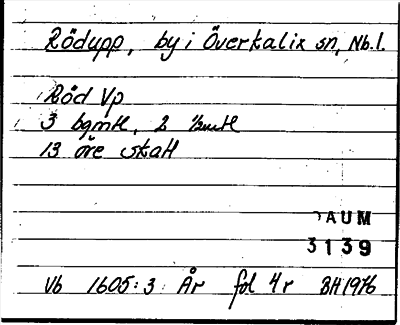 Rödupp, by i Överkalix sn, Nb.l.
Röd Vp
3 bgmtl, 2 ½mtl
13 öre skatt
DAUM
3139
Vb 1605:3 År fol 4r BH1976